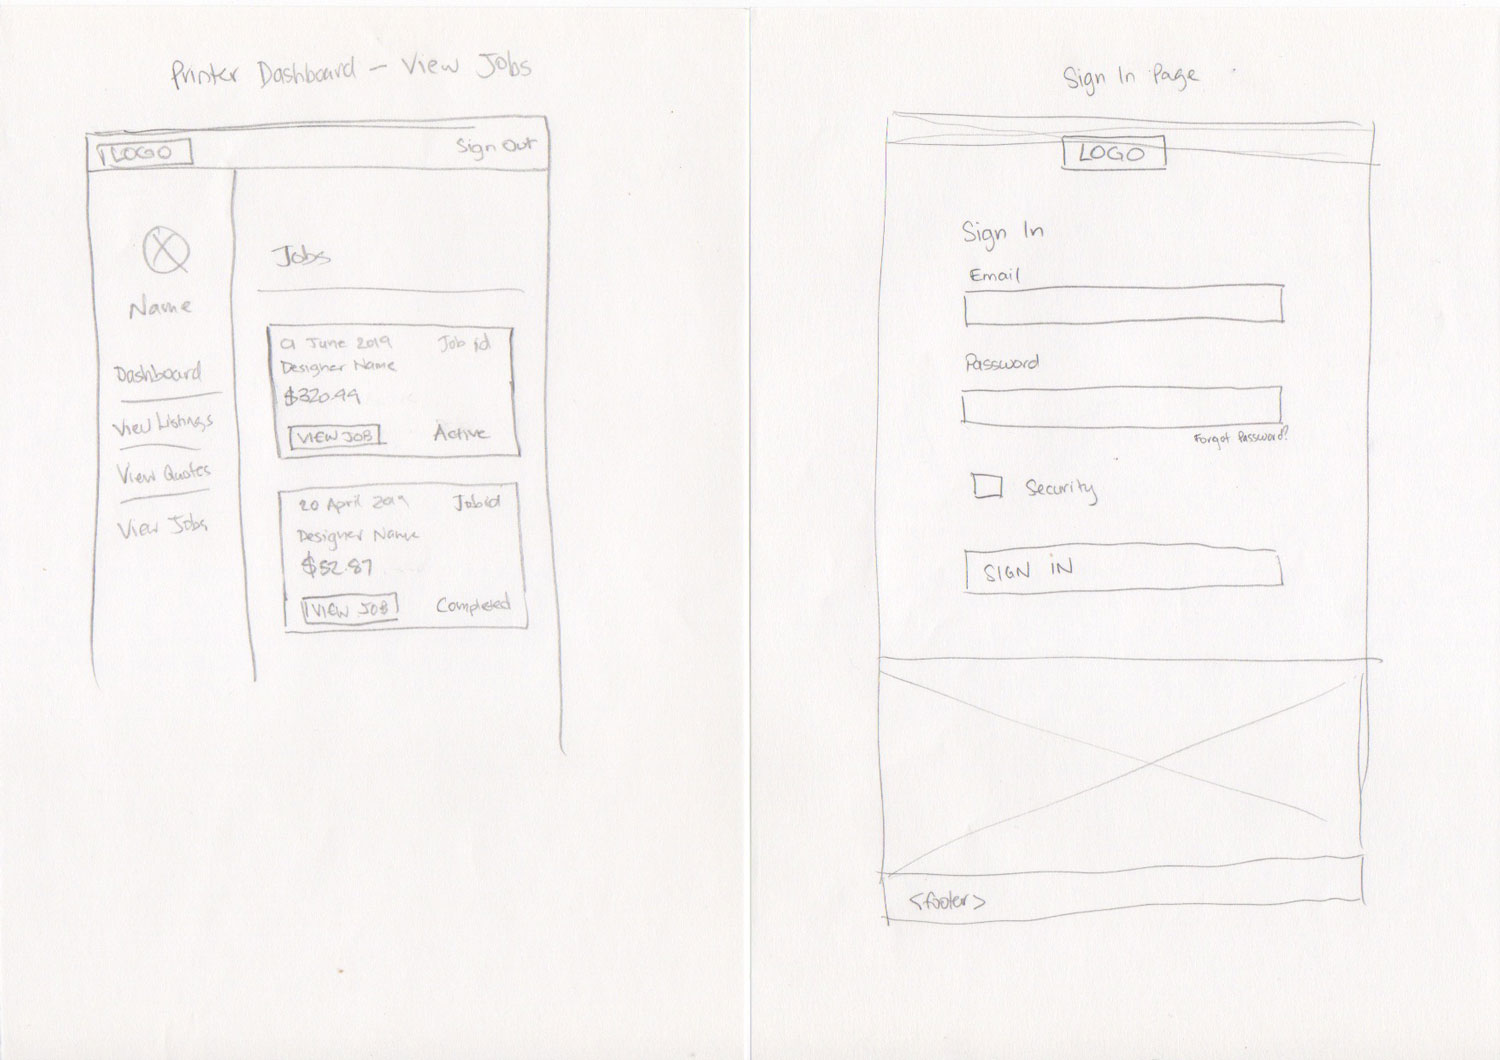 Printer Dashboard - View Jobs
LOGO
Sign Out
Name
Dashboard
View Listings
View Quotes
View Jobs
Jobs
9 June 2019
Job id
Designer Name
$320.99
VIEW JOB
Active
20 April 2019
Job id
Designer Name
$52.87
VIEW JOB
Completed
Sign In Page
LOGO
Sign In
Email
Password
Forgot Password?
Security
SIGN IN
<footer>